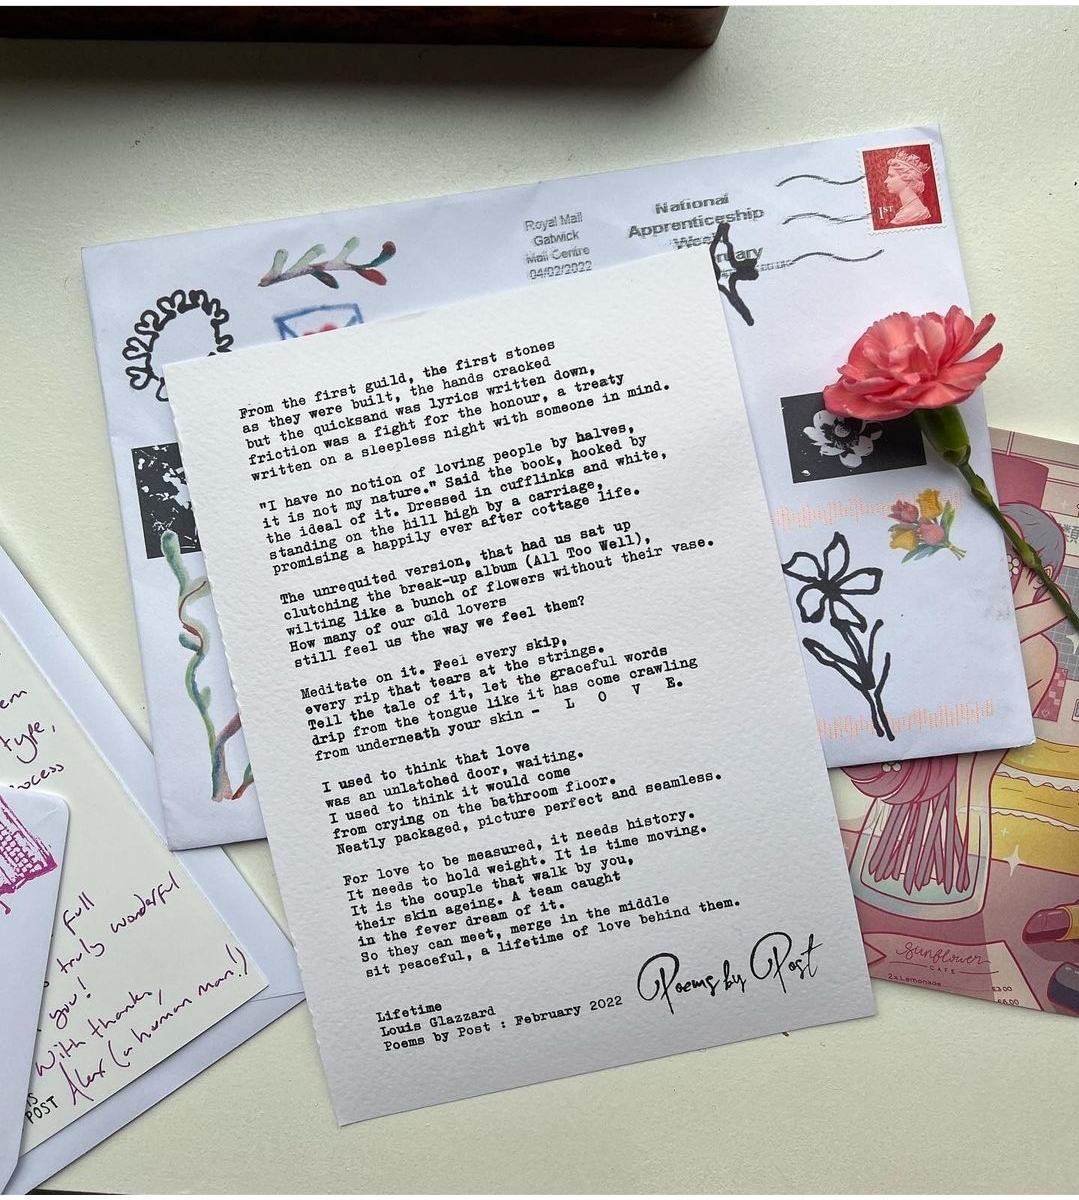 Royal Mail
Gatwick
Mail Centre
04/02/2022
National
Apprenticeship
1ST
From the first guild, the first stones
as they were built, the hands cracked
but the quicksand was lyrics written down,
friction was a fight for the honour, a treaty
written on a sleepless night with someone in mind.
"I have no notion of loving people by halves,
it is not my nature." Said the book, hooked by
the ideal of it. Dressed in cufflinks and white,
standing on the hill high by a carriage,
promising a happily ever after cottage life.
The unrequited version, that had us sat up
clutching the break-up album (All Too Well),
wilting like a bunch of flowers without their vase.
How many of our old lovers
still feel us the way we feel them?
Meditate on it. Feel every skip,
every rip that tears at the strings.
Tell the tale of it, let the graceful words
drip from the tongue like it has come crawling
from underneath your skin - L O V E.
I used to think that love
was an unlatched door, waiting.
I used to think it would come
from crying on the bathroom floor.
Neatly packaged, picture perfect and seamless.
For love to be measured, it needs history.
It needs to hold weight. It is time moving.
It is the couple that walk by you,
their skin ageing. A team caught
in the fever dream of it.
So they can meet, merge in the middle
sit peaceful, a lifetime of love behind them.
Lifetime
Louis Glazzard
Poems by Post : February 2022
Poems by Post
type,
full
truly wonderful
you!
With thanks,
Alex (a human man!)
POST
sunflower
CAFE
2x Lemonade
£3.00
£6.00